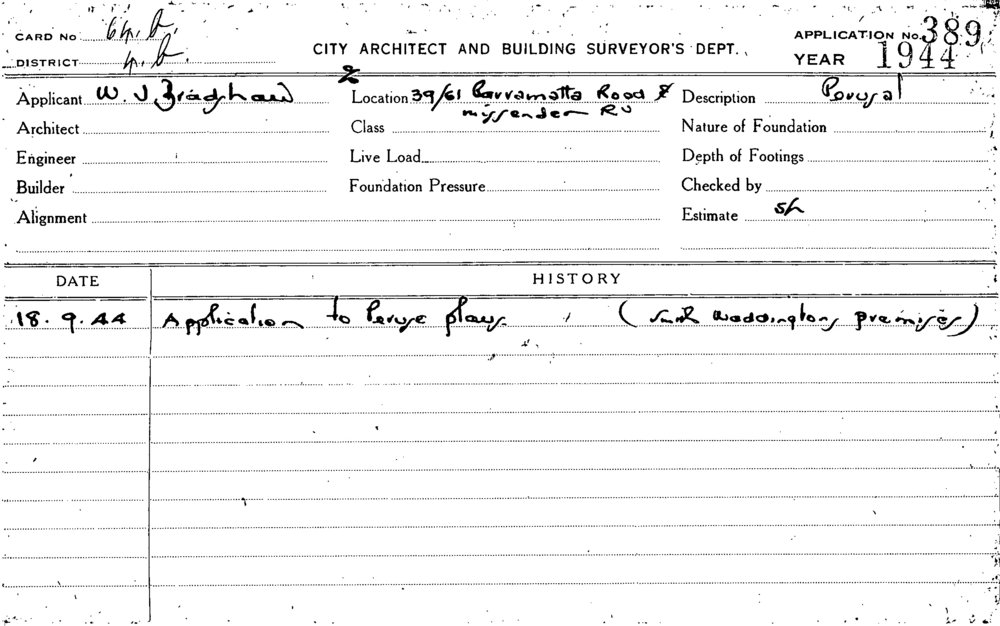 CARD No 64.B. APPLICATION No. 389
CITY ARCHITECT AND BUILDING SURVEYOR'S DEPT.
DISTRICT 4.B. YEAR 1944
Applicant W. J. Bradshaw Location 39/61 Parramatta Road & Description Perusal
Missenden Rd
Architect Class Nature of Foundation
Engineer Live Load Depth of Footings
Builder Foundation Pressure Checked by
Alignment Estimate 5/-
DATE HISTORY
18.9.44 Application to Peruse plans. (Smith Waddingtons premises)